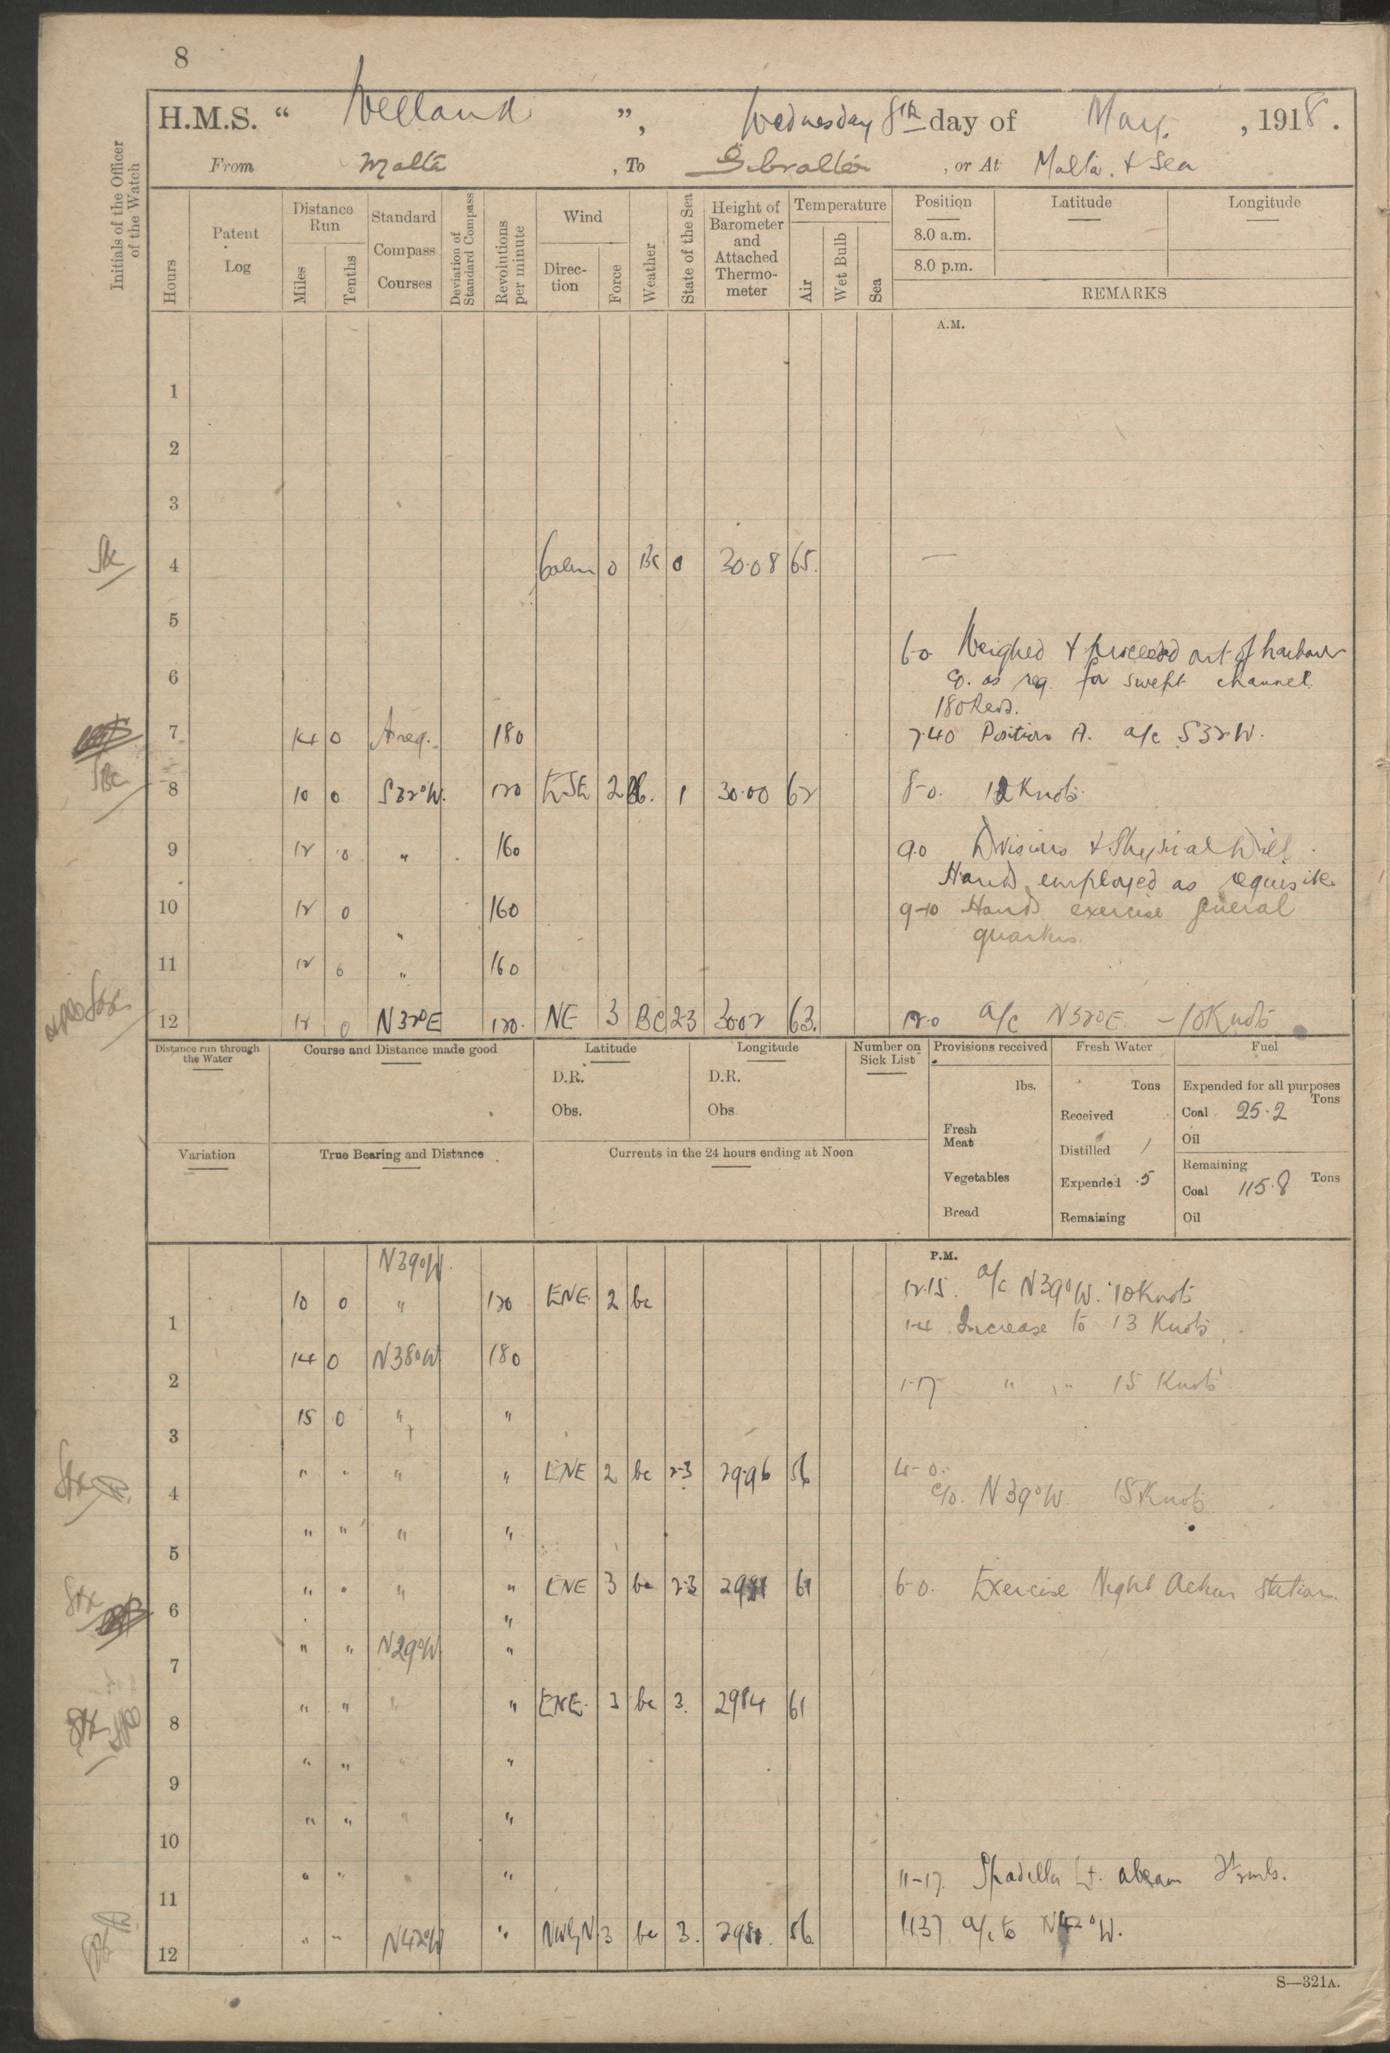 8
H.M.S. “ Welland ”, Wednesday 8th day of May, 1918.
From Malta , To Gibraltar , or At Malta & Sea
Initials of the Officer of the Watch
Hours
Patent Log
Distance Run
Miles
Tenths
Standard Compass Courses
Deviation of Standard Compass
Revolutions per minute
Wind
Direc-tion
Force
Weather
State of the Sea
Height of Barometer and Attached Thermo-meter
Temperature
Air
Wet Bulb
Sea
Position Latitude Longitude
8.0 a.m.
8.0 p.m.
REMARKS
A.M.
1
2
3
4 Calm 0 Bc 0 30.08 65.
5
6-0 Weighed & proceeded out of harbour
Co. as req. for swept channel.
6
180 Revs.
7 14 0 As req. 180
7.40 Position A. a/c S32°W.
8 10 0 S32°W. 120 ESE 2 Bc. 1 30.00 62 8-0. 12 Knots.
9 12 0 " 160 9.0 Divisions & Physical Drill.
Hands employed as requisite
10 12 0 " 160 9-10 Hands exercise general
quarters.
11 12 0 " 160
12 12 0 N32°E 120. NE 3 Bc 2-3 30.02 63. 12.0 a/c N32°E. – 10 Knots
Distance run through the Water
Course and Distance made good
Latitude
D.R.
Obs.
Longitude
D.R.
Obs.
Number on Sick List
Provisions received
lbs.
Fresh Meat
Vegetables
Bread
Fresh Water
Tons
Received
Distilled 1
Expended .5
Remaining
Fuel
Expended for all purposes
Tons
Coal 25.2
Oil
Remaining
Coal 115.8 Tons
Oil
Variation
True Bearing and Distance
Currents in the 24 hours ending at Noon
P.M.
N39°W.
12.15. a/c N39°W. 10 Knots
1 10 0 " 120 ENE. 2 bc
1-4 Increase to 13 Knots.
2 14 0 N38°W 180
1-17 " " 15 Knots
3 15 0 " "
4 " " " " ENE 2 bc 2-3 29.96 56 4-0.
Co. N39°W. 15 Knots
5 " " " "
6 " " " " ENE 3 bc 2-3 61 6-0. Exercise Night Action Stations.
"
7 " " N29°W. "
8 " " " " ENE. 3 bc 3. 2984 61
9 " " " "
10 " " " "
11 " " " "
11-17. Lt. abeam
12 " " N42°W " NWbyN 3 bc 3. 56 1137 a/c to N42°W.
S—321A.